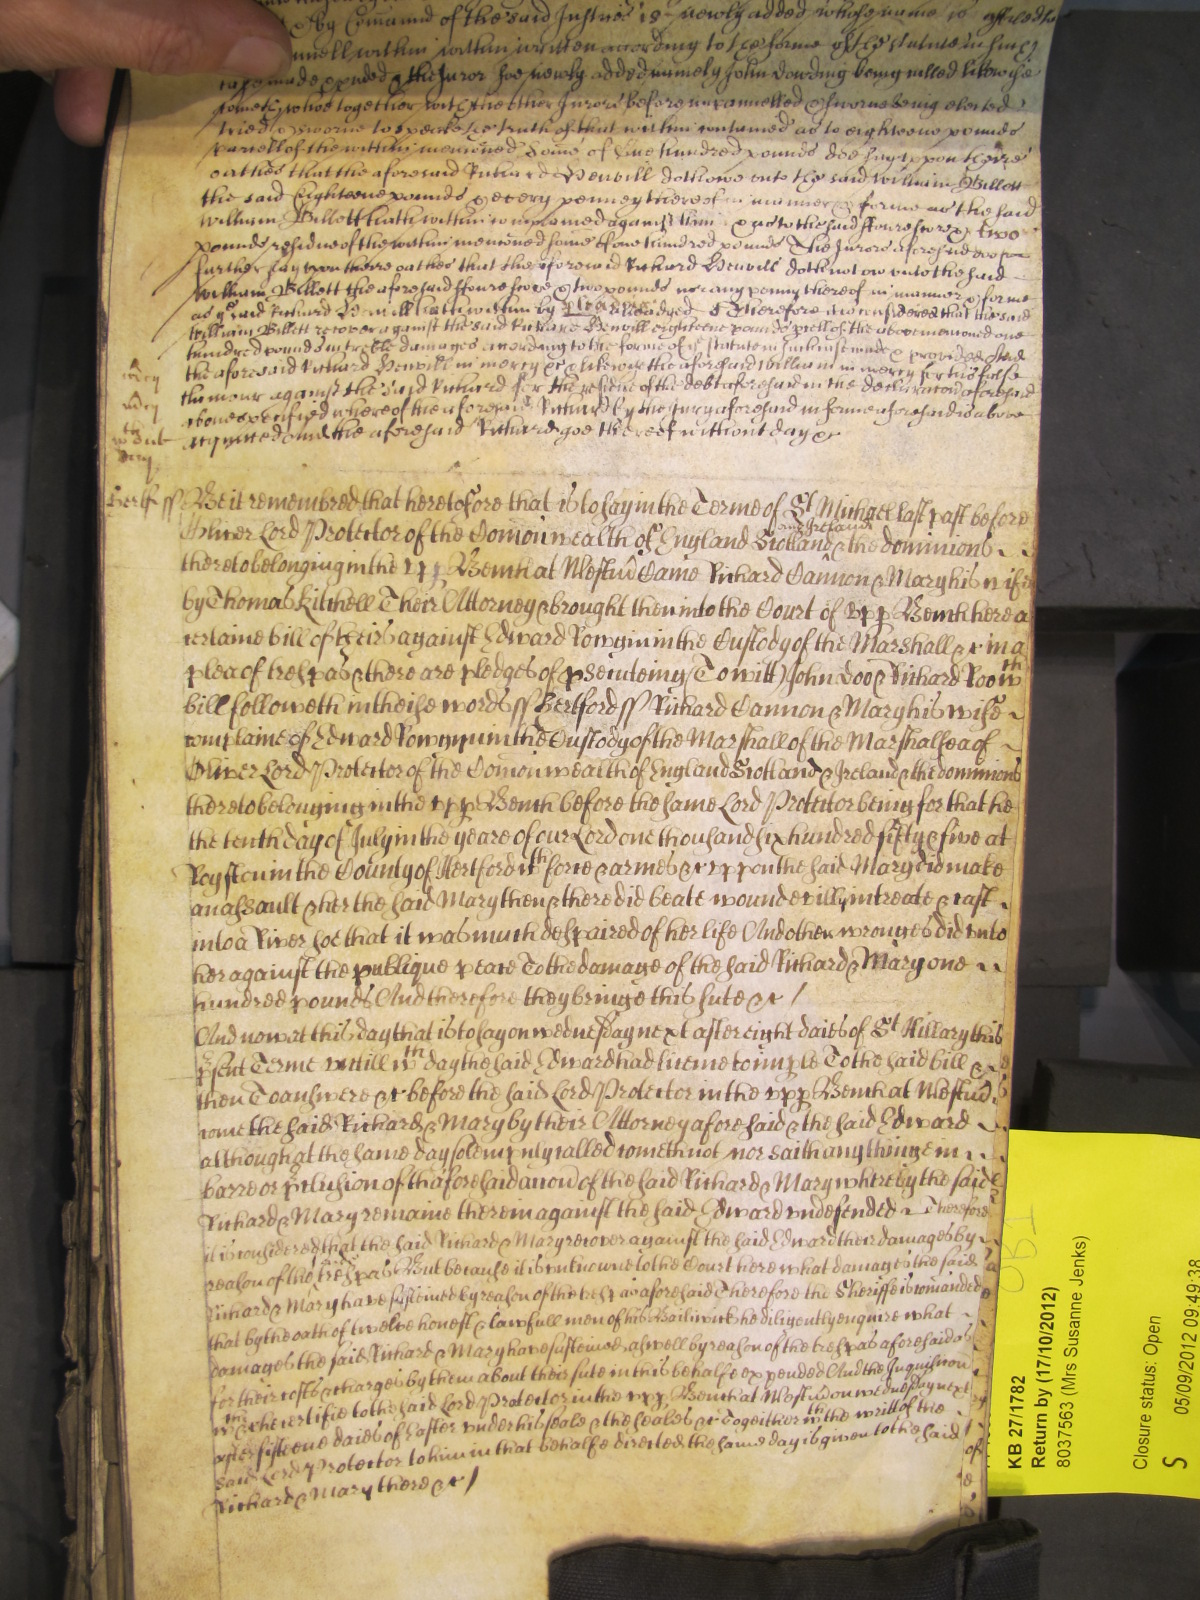 & by Comaund of the said Justices is newly added whose name is affiled to
within written according to the forme of the statute in such
case made & provided & the Juror soe newly added namely John Dowding being called likewise
cometh whoe together with the other Jurors before impannelled & sworne being elected
tried & sworne to speake the truth of that within contained as to eighteene pounds
parcell of the within mencioned some of One hundred pounds doe say uppon theire
oathes that the aforesaid Richard Henvill doth owe unto the said William Billett
the said Eighteene pounds & every penney thereof in manner & forme as the said
William Billett hath within complained against him & as to the said ffoure score & two
pounds residue of the within mencioned some of one hundred pounds The Jurors aforesaid doe
further say upon theire oathes that the aforesaid Richard Henvill doth not ow unto the said
William Billett the aforesaid ffoure score & two pounds nor any penny thereof in manner & forme
as ye said Richard Henvill hath within by alleadged Therefore it is considered that the said
William Billett recover against the said Richard Henvill eighteene pounds pcell of the above mencioned one
hundred pounds & treble damages according to the forme of ye statute in such case made & provided And
the aforesaid Richard Henvill in mercy &c likewise the aforesaid William in mercy for his false
clamour against the said Richard for the residue of the debt aforesaid in the declaracion aforesaid
above specified whereof the aforesaid Richard by the Jury aforesaid in forme aforesaid is above
acquited and the aforesaid Richard goe thereof without day &c
mercy
mercy
Hertf ss Be it remembred that heretofore that is to say in the Terme of St Michael last past before
Oliver Lord Protector of the Comonwealth of England Scotland and Ireland & the dominions
thereto belonging in the upp Bench at Westm̃ Came Richard Cannon & Mary his wife
by Thomas Kitchell Their Attorney & brought then into the Court of upp Bench here a
certaine bill of theirs against Edward Rowgin in the Custody of the Marshall &c in a
plea of trespas & there are pledges of pseinteing (To witt) John Doo & Richard Roo wch
bill followeth in theise words ss Hertford ss Richard Cannon & Mary his wife
complaine of Edward Rowgin in the Custody of the Marshall of the Marshalsea of
Oliver Lord Protector of the Comonwealth of England Scotland & Ireland & the dominions
thereto belonging in the upp Bench before the same Lord Protector being for that he
the tenth day of July in the yeare of our Lord one thousand six hundred fifty & five at
Royston in the County of Hertford wth force & armes &c uppon the said Mary did make
an assault & her the said Mary then & there did beate wounde evilly intreate & cast
into a River soe that it was much despaired of her life And other wronges did unto
her against the publique peace To the damage of the said Richard & Mary one
hundred pounds And therefore they bringe this sute &c /
And now at this day that is to say on wednesday next after eight daies of St Hillary this
psent Terme untill wch day the said Edward had licence to imple To the said bill &
then To answere &c before the said Lord Protector in the upp Bench at Westm̃
come the said Richard & Mary by their Attorney aforesaid & the said Edward
although at the same day solempnly called cometh not nor saith any thinge in
barre or pclusion of thaforesaid accon of the said Richard & Mary whereby the said
Richard & Mary remaine therein against the said Edward undefended Therefore
it is considered that the said Richard & Mary recover against the said Edward their damages by
reason of the trespas But because it is unknowne to the Court here what damages the said
Richard & Mary have susteined by reason of the tresp as aforesaid Therefore the Sheriffe is comanded
that by the oath of twelve honest & lawfull men of his Bailiwick he diligently enquire what
damages the said Richard & Mary have susteined aswell by reason of the trespas aforesaid as
for their costs & charges by them about their sute in this behalfe expended And the Inquisicion
wch &c he certifie to the said Lord Protector in the upp Bench at Westm̃ on wednesday next
after fifteene daies of Easter under his seale & the seales &c Togeither wth the writt of the
said Lord Protector to him in that behalfe directed the same day is given to the said
Richard & Mary there &c /
KB 27/1782
Return by (17/10/2012)
8037563 (Mrs Susanne Jenks)
Closure status: Open
S 05/09/2012 09:49:38